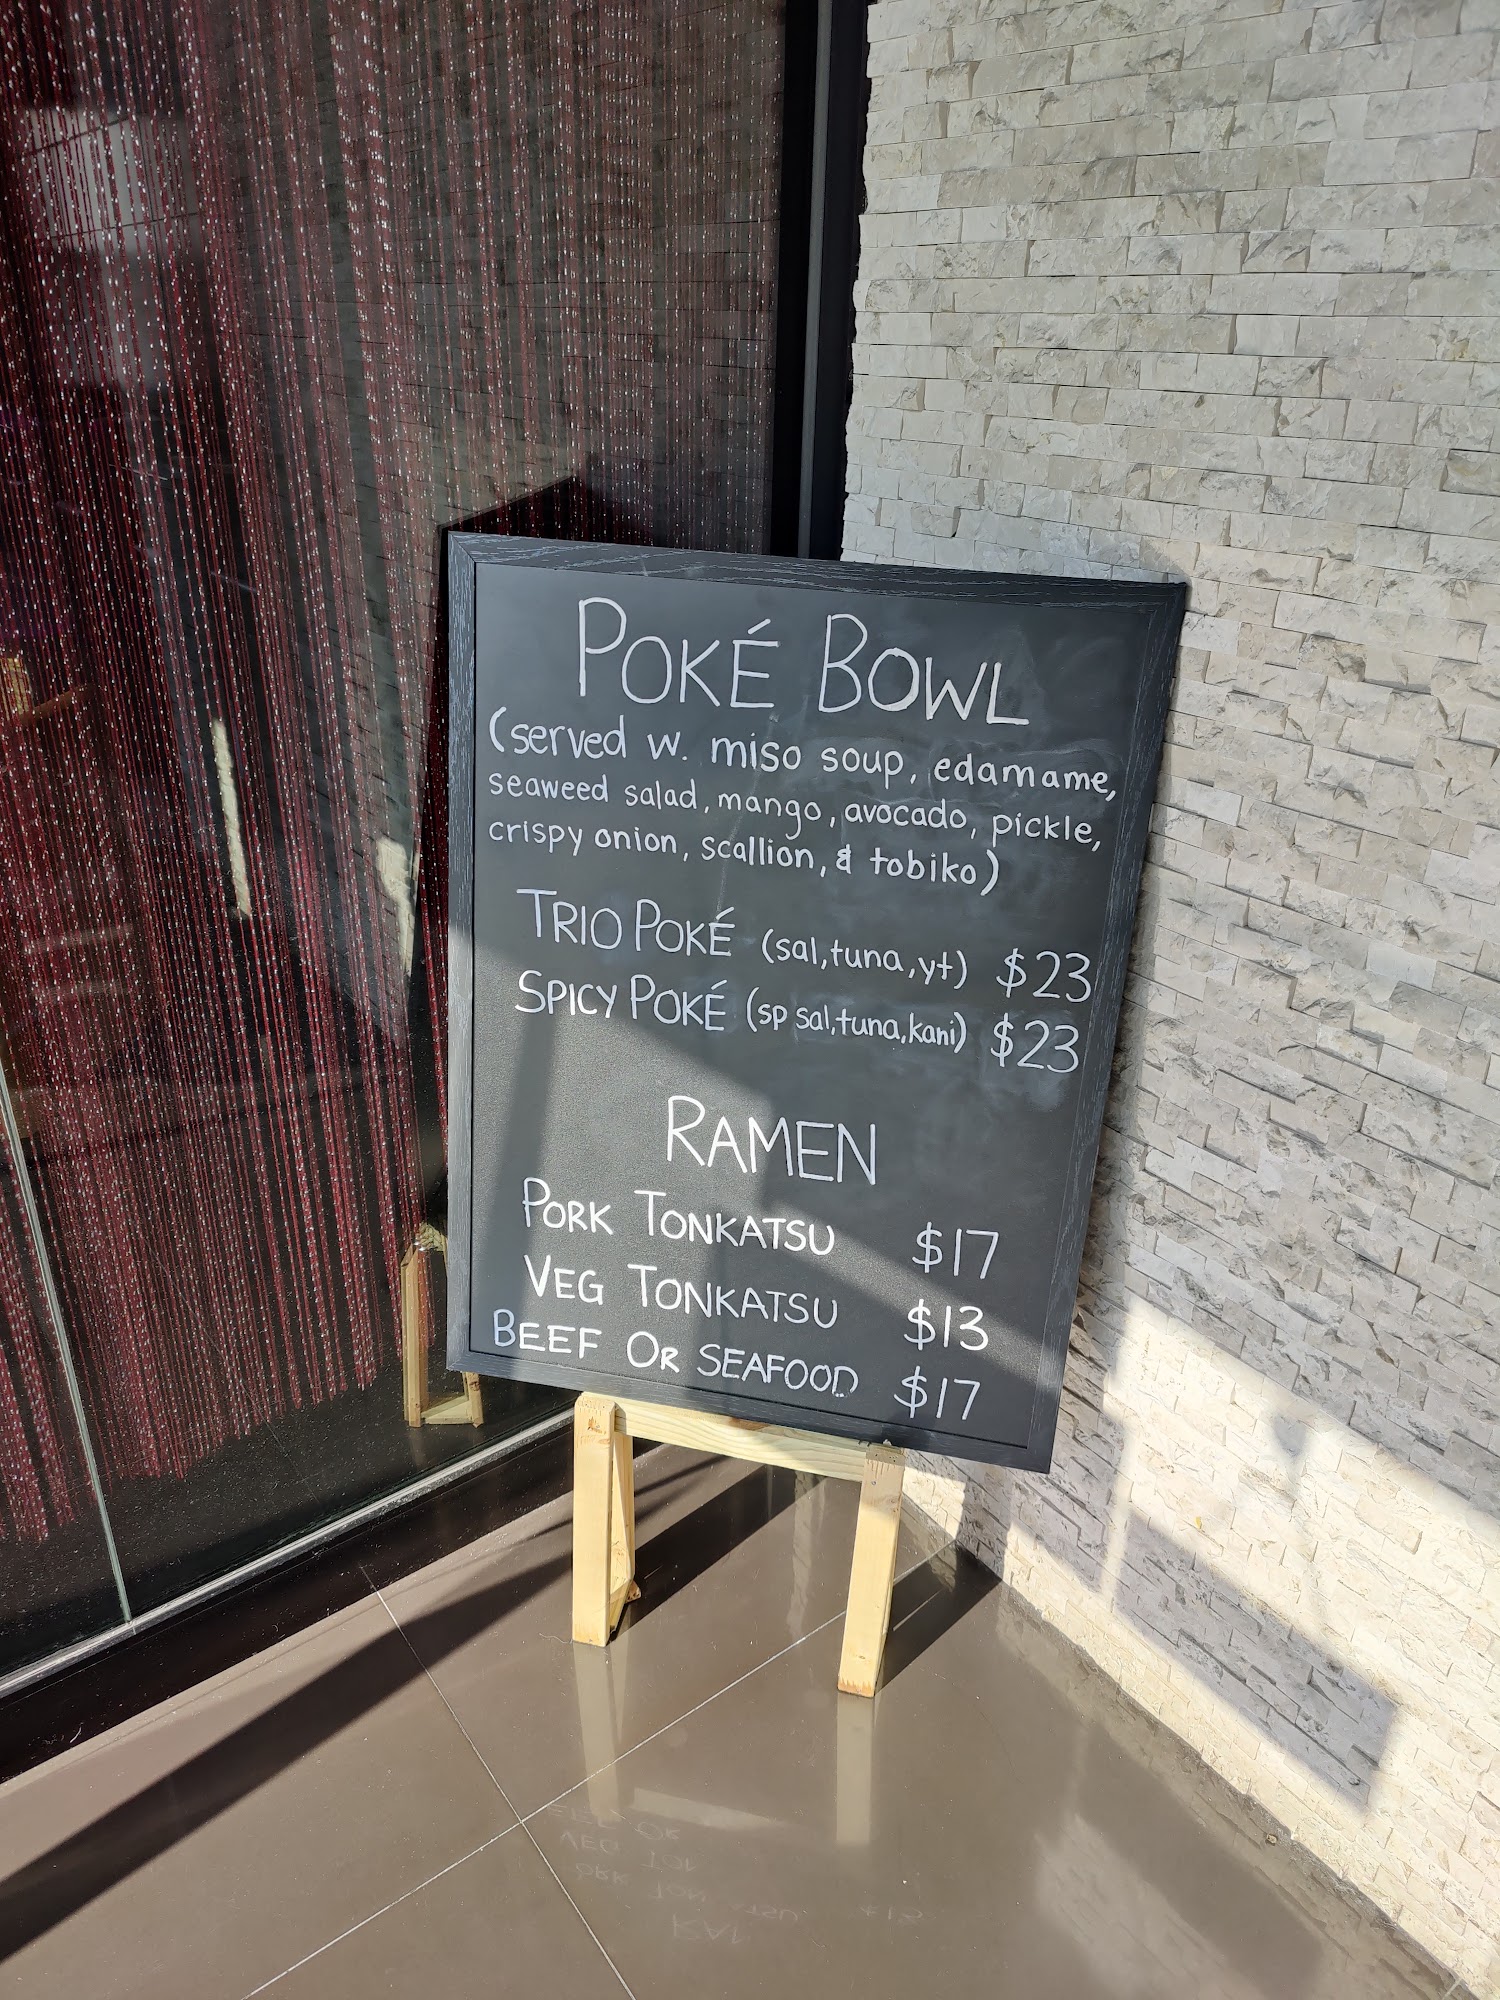 POKÉ BOWL
(served w. miso soup, edamame,
seaweed salad, mango, avocado, pickle,
crispy onion, scallion, & tobiko)
TRIO POKÉ (sal, tuna, yt) $23
SPICY POKÉ (sp sal, tuna, kani) $23
RAMEN
PORK TONKATSU $17
VEG TONKATSU $13
BEEF OR SEAFOOD $17